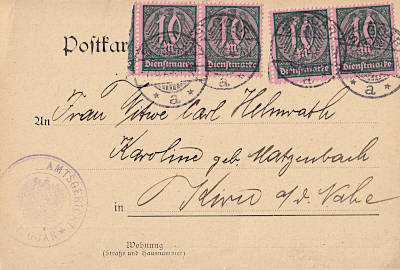 Postkar
10 10 10 10
M M M M
Dienstmarke Dienstmarke Dienstmarke Dienstmarke
a a
An Frau Witwe Carl Helmrath
Karoline geb. Matzenbach
in Kirn a/d. Nahe
AMTSGERICHT
GOAR
Wohnung
(Straße und Hausnummer)